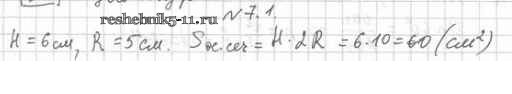 reshebnik5-11.ru № 7.1
H = 6 см, R = 5 см. Sос.сеч = H · 2R = 6 · 10 = 60 (см²)